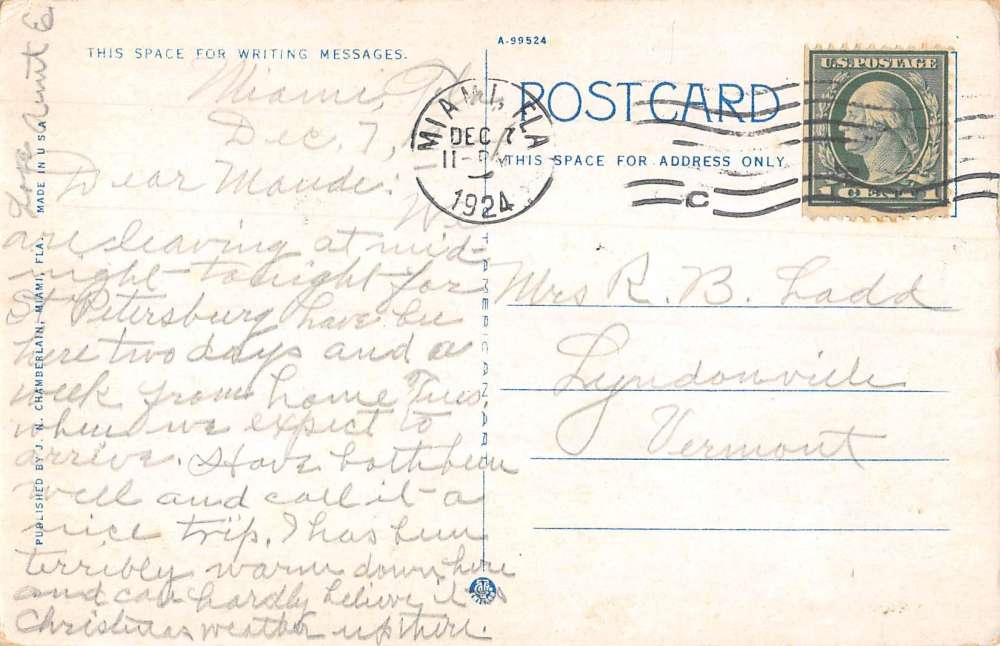 THIS SPACE FOR WRITING MESSAGES.
Miami, Fla.
Dec. 7,
Dear Maude:
We
are leaving at mid-
night tonight for
St Petersburg have been
here two days and a
week from home Tues
when we expect to
arrive. Have both been
well and call it a
nice trip. I has been
terribly warm down here
and can hardly believe it
Christmas weather up there.
Love Aunt E
PUBLISHED BY J. N. CHAMBERLAIN, MIAMI, FLA. MADE IN U S A
A-99524
POST CARD
THIS SPACE FOR ADDRESS ONLY
MIAMI, FLA
DEC 7
11-PM
1924
C
U.S. POSTAGE
1 CENT 1
Mrs R. B. Ladd
Lyndonville
Vermont